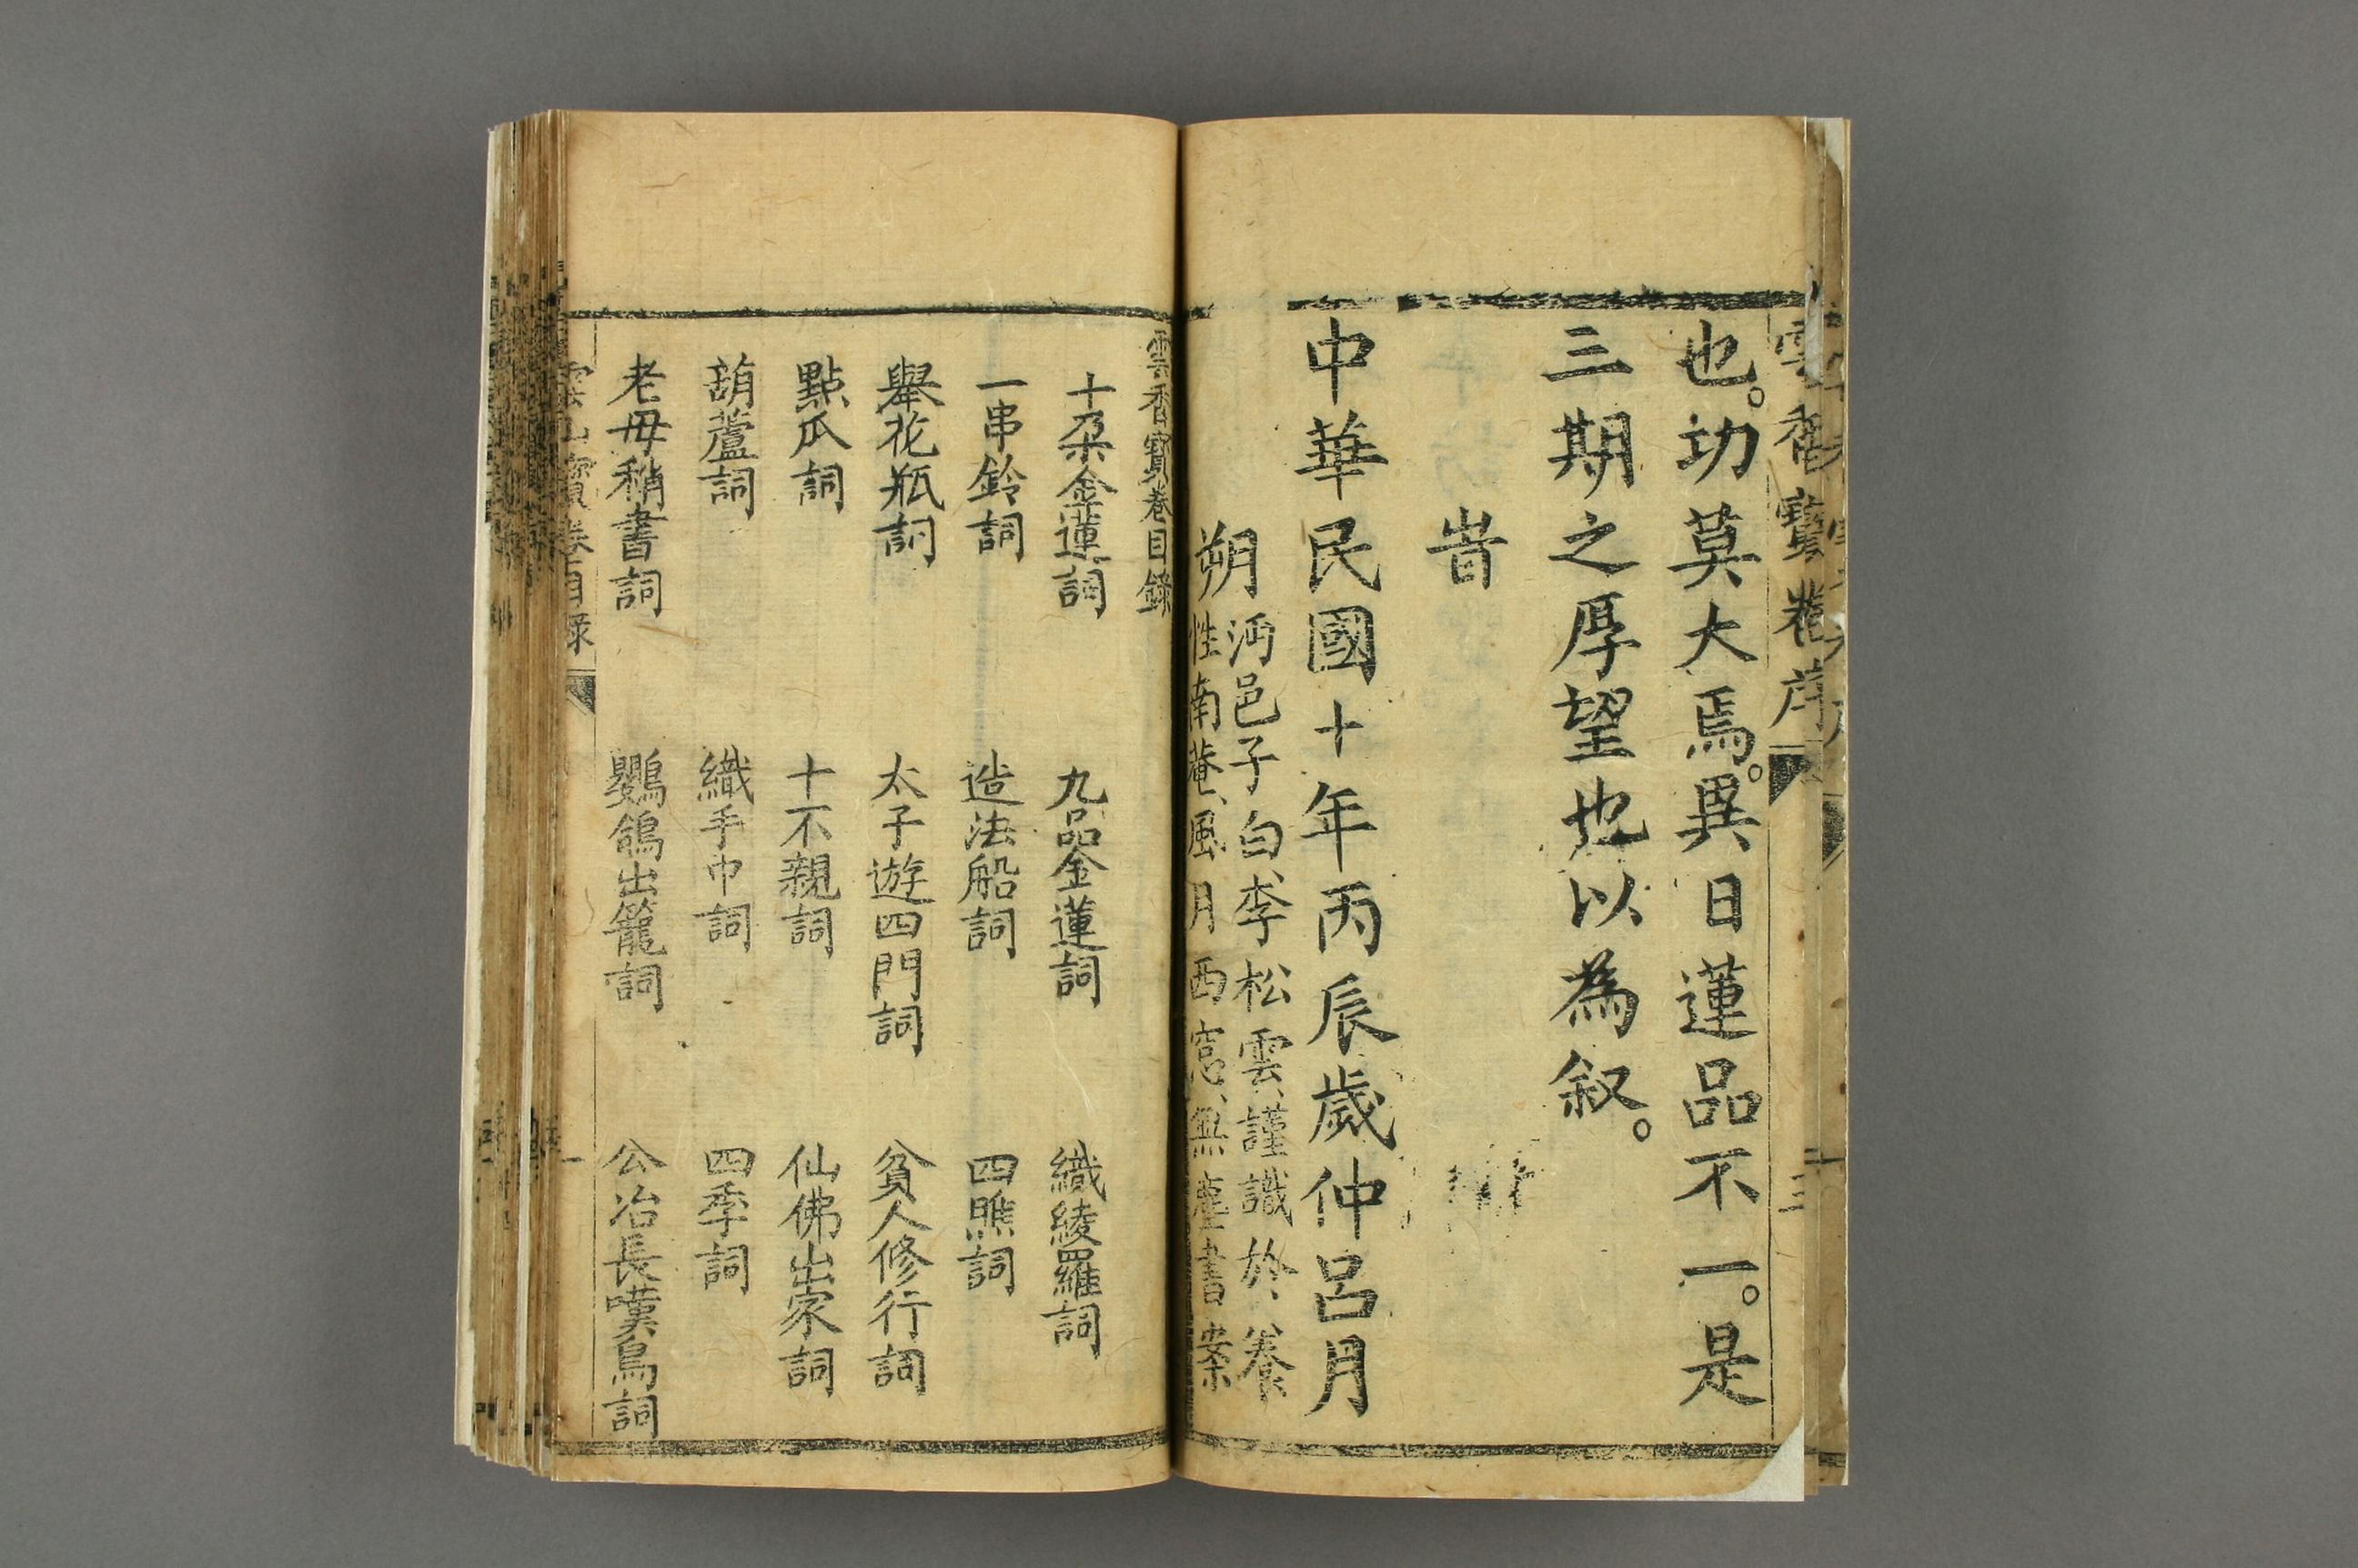 雲香寳卷序
三
也。功莫大焉。異日蓮品不一。是
三期之厚望也以為叙。
旹
中華民國十年丙辰歲仲呂月
朔
沔邑子白李松雲謹識於養
性南菴風月西窓無塵書案
雲香寳卷目錄
十朶金蓮詞
九品金蓮詞
織綾羅詞
一串鈴詞
造法船詞
四瞧詞
舉花瓶詞
太子遊四門詞
貧人修行詞
點瓜詞
十不親詞
仙佛出家詞
葫蘆詞
織手巾詞
四季詞
老母稍書詞
鸚鴿出籠詞
公冶長嘆鳥詞
寳卷目录
一